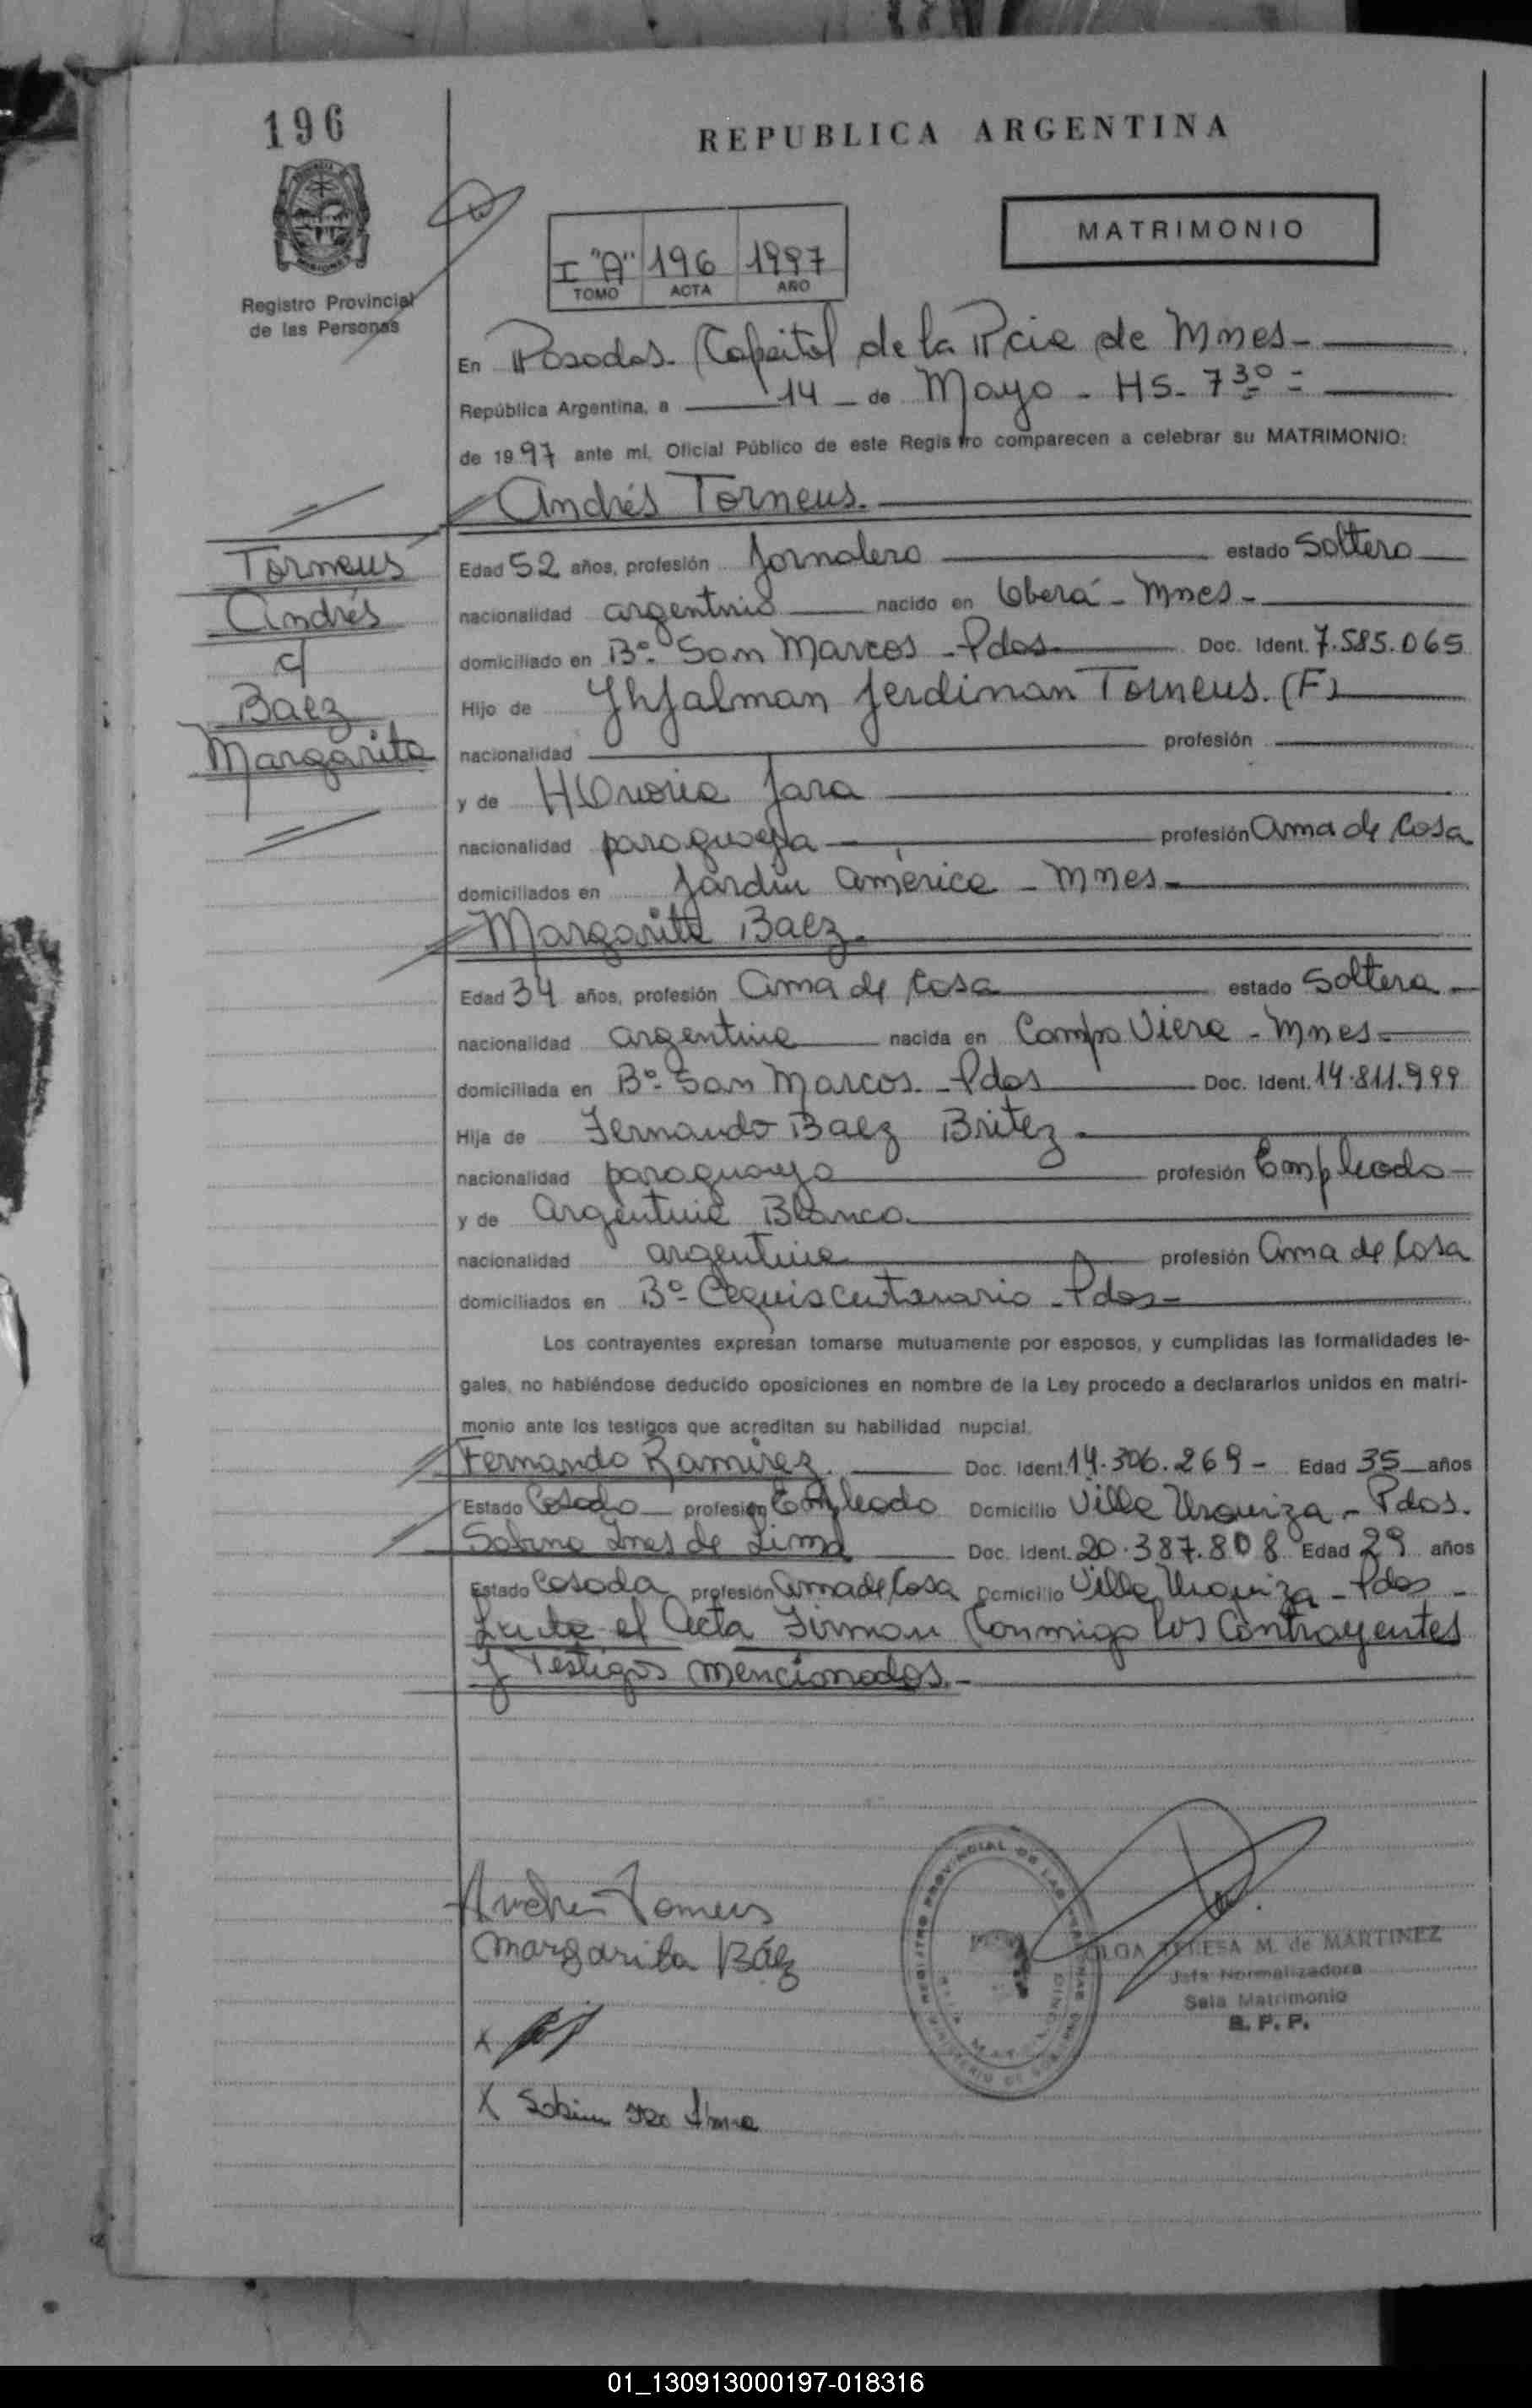 196
REPUBLICA ARGENTINA
MATRIMONIO
I "A" 196 1997
TOMO ACTA AÑO
Registro Provincial
de las Personas
En Posadas - Capital de la Pcia de Mnes -
República Argentina, a 14 - de Mayo - HS - 7 30 =
de 1997 ante mí, Oficial Público de este Registro comparecen a celebrar su MATRIMONIO:
Andrés Torneus.
Torneus
Andrés
c/
Baez
Margarita
Edad 52 años, profesión Jornalero estado Soltero
nacionalidad argentino nacido en Oberá - Mnes -
domiciliado en Bº San Marcos - Pdas Doc. Ident. 7.585.065
Hijo de Yhjalman Ferdinan Torneus. (F)
nacionalidad profesión
y de Jara
nacionalidad paraguaya profesión ama de Casa
domiciliados en Jardín América - Mnes -
Margarita Baez.
Edad 34 años, profesión ama de Casa estado Soltera -
nacionalidad argentina nacida en Campo Viera - Mnes -
domiciliada en Bº San Marcos - Pdas Doc. Ident. 14.811.999
Hija de Fernando Baez Britez -
nacionalidad paraguayo profesión Empleado -
y de Argentina Blanco.
nacionalidad argentina profesión ama de Casa
domiciliados en Bº Cequiscentenario - Pdas -
Los contrayentes expresan tomarse mutuamente por esposos, y cumplidas las formalidades le-
gales, no habiéndose deducido oposiciones en nombre de la Ley procedo a declararlos unidos en matri-
monio ante los testigos que acreditan su habilidad nupcial.
Fernando Ramirez. Doc. Ident. 14.306.269 - Edad 35 años
Estado Casado profesión Empleado Domicilio Villa Urquiza - Pdas.
Sabina Ines de Lima Doc. Ident. 20.387.808 Edad 29 años
Estado Casada profesión ama de Casa Domicilio Villa Urquiza - Pdas -
el Acta Firman Conmigo los Contrayentes
y Testigos mencionados. -
Andres Torneus
Margarita Báez
REGISTRO PROVINCIAL DE LAS PERSONAS
TERESA M. de MARTINEZ
Jefa Normalizadora
Sala Matrimonio
R. P. P.
X
X Sabina
01_130913000197-018316